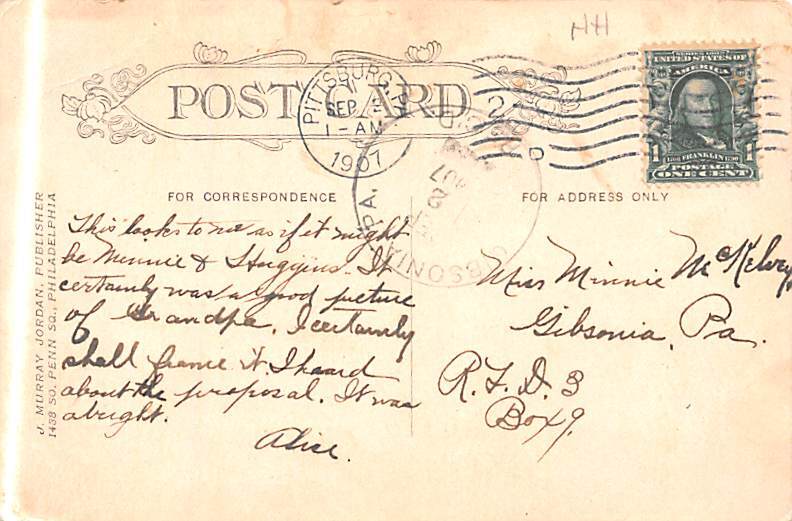 HH
SERIES 1902
UNITED STATES OF
AMERICA
1 FRANKLIN 1
POSTAGE
ONE CENT
POST CARD
PITTSBURG, PA.
SEP
1-AM
1907
2
D
GIBSONIA, PA.
FOR CORRESPONDENCE
FOR ADDRESS ONLY
This looks to me as if it might
be Minnie & Huggins. It
certainly was a good picture
of Grandpa, I certainly
shall frame it. I heard
about the proposal. It was
alright.
Alice.
Miss Minnie McKelvey
Gibsonia, Pa.
R.F.D. 3
Box 9.
J. MURRAY JORDAN, PUBLISHER
1438 SO. PENN SQ., PHILADELPHIA